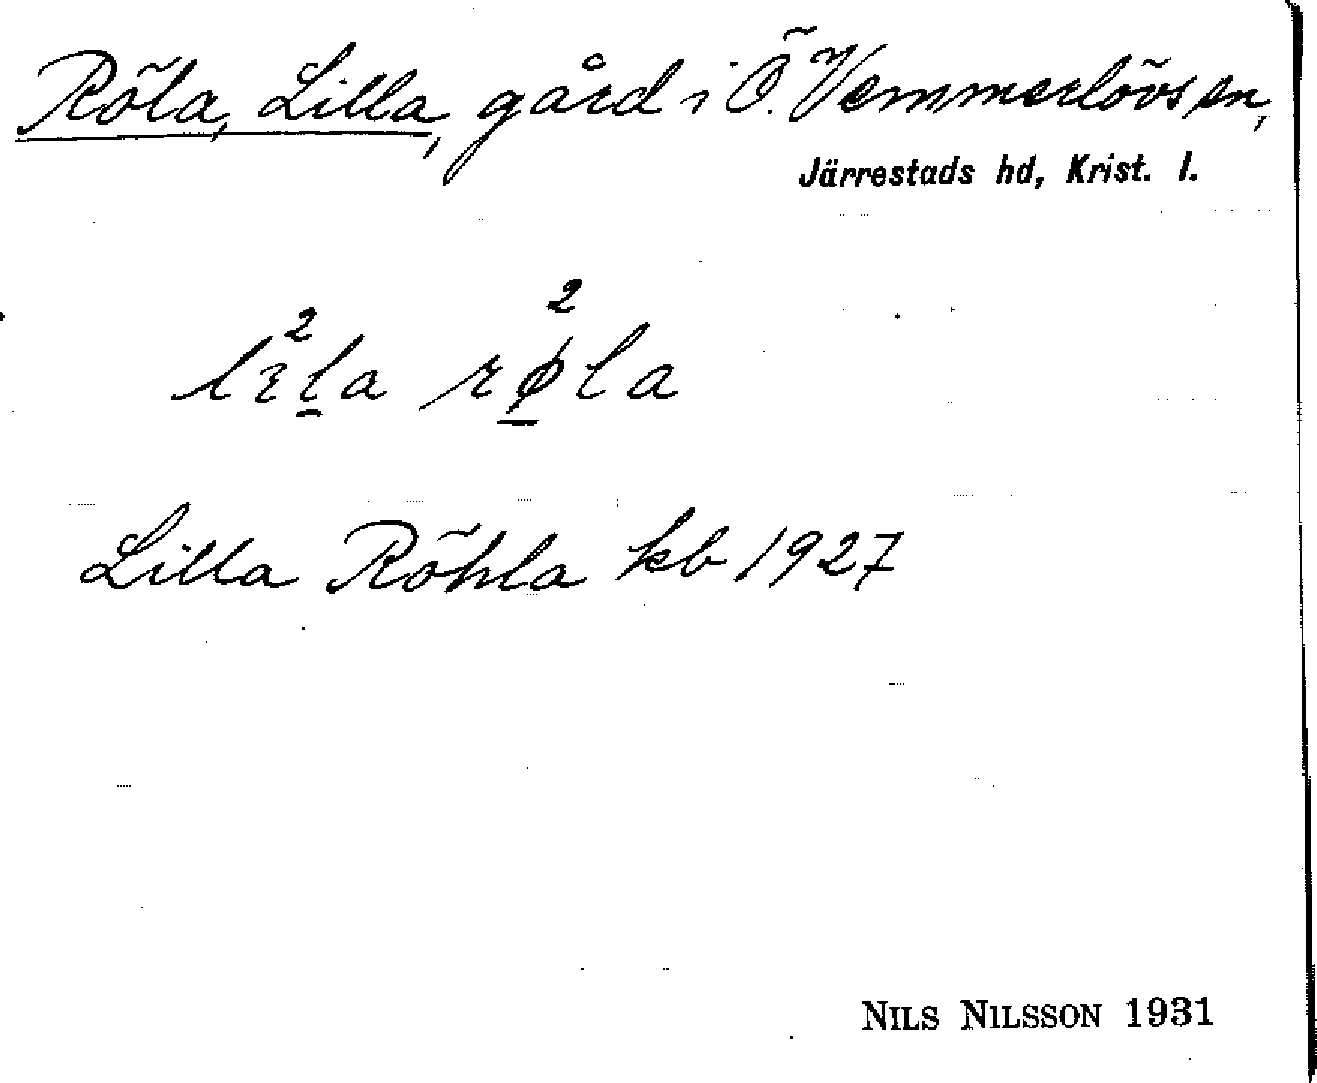 Röla, Lilla, gård i Ö. Vemmerlövs sn,
Järrestads hd, Krist. l.
lɪ²l̲a rø̲²la
Lilla Röhla kb 1927
NILS NILSSON 1931